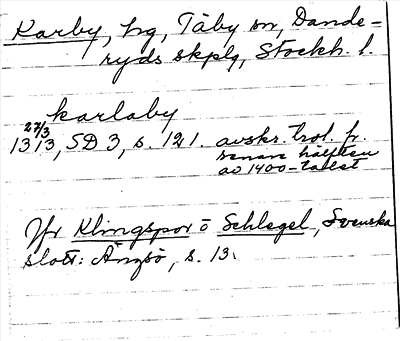 Karby, hg, Täby sn, Dande-
ryds skplg, Stockh. l.
karlaby
1313 27/3, SD 3, s. 121. avskr. trol. fr.
senare hälften
av 1400-talet
Jfr Klingspor o Schlegel, Svenska
slott: Ängsö, s. 13.